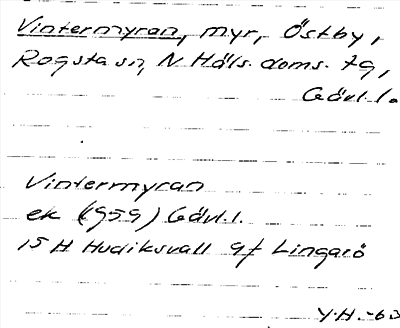 Vintermyran, myr, Östby,
Rogsta sn, N. Häls. doms. tg,
Gävl. l.
Vintermyran
ek (1959) Gävl. l.
15 H Hudiksvall 9f Lingarö
Y.H. -63